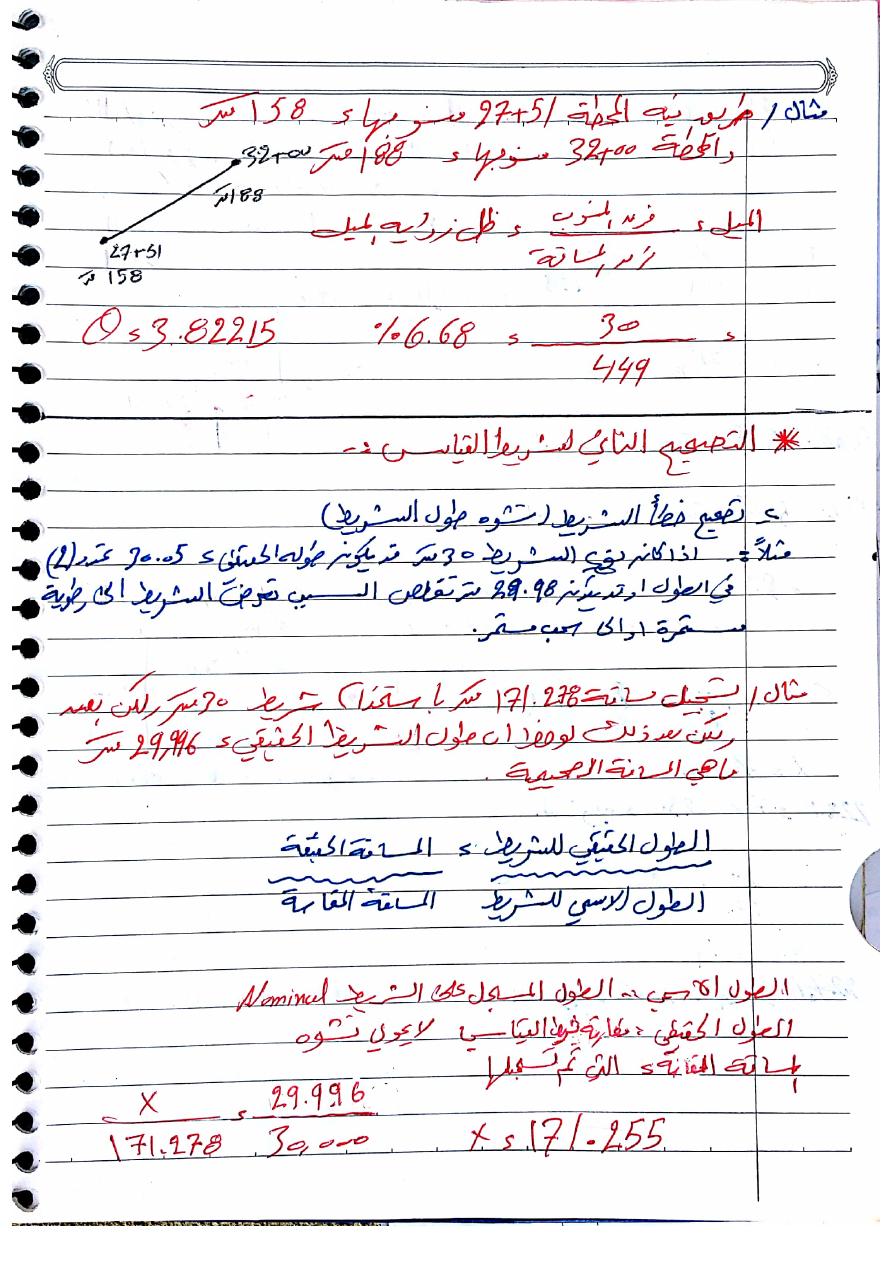 مثال / طريق فيه المحطة 27+51 منسوبها = 158 متر
والمحطة 32+00 منسوبها = 188 متر
32+00
188 متر
27+51
158 متر
الميل = فرق المنسوب / فرق المسافة = ظل زاوية الميل
= 30 / 449 = 6.68 % θ = 3.82215
* التصحيح الثاني لشريط القياس :-
= تصحيح خطأ الشريط (تشوه طول الشريط)
مثلاً :- اذا كان الشريط 30 متر قد يكون طوله الحقيقي = 30.05 تمدد (2)
في الطول او قد يكون 29.98 متر تقلص السبب تعرض الشريط الى رطوبة
مستمرة او الى سحب مستمر.
مثال / تسجيل مسافة 171.278 متر باستخدام شريط 30 متر ولكن بعد
ولكن بعد ذلك لوحظ ان طول الشريط الحقيقي = 29.996 متر
ما هي المسافة الصحيحة.
الطول الحقيقي للشريط = المسافة الحقيقة
الطول الاسمي للشريط المسافة المقاسة
الطول الاسمي :- الطول المسجل على الشريط Nominal
الطول الحقيقي : مقارنة شريط القياس لا يحوي تشوه
المسافة المقاسة = التي تم تسجيلها
X = 29.996
171.278 30,000 X = 171.255